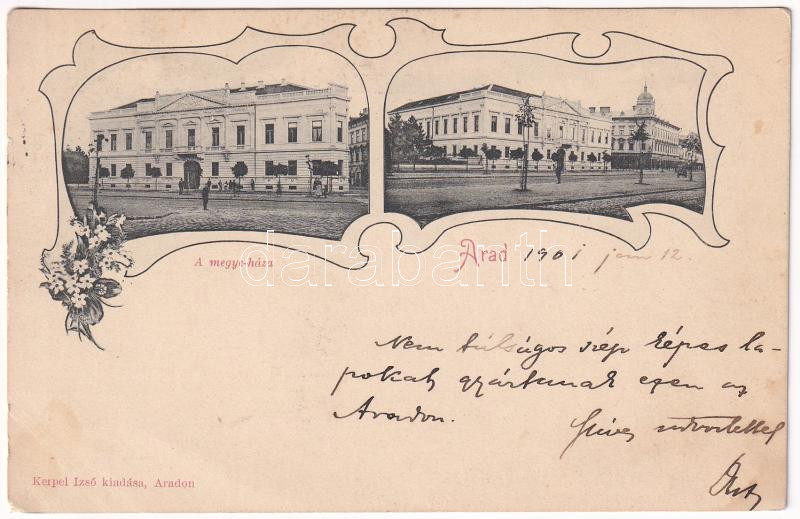 A megye-háza
Arad 1901 jan 12
darabanth
Nem túlságos szép képes la-
pokat gyártanak ezen az
Aradon.
Szíves üdvözlettel
Kerpel Izsó kiadása, Aradon